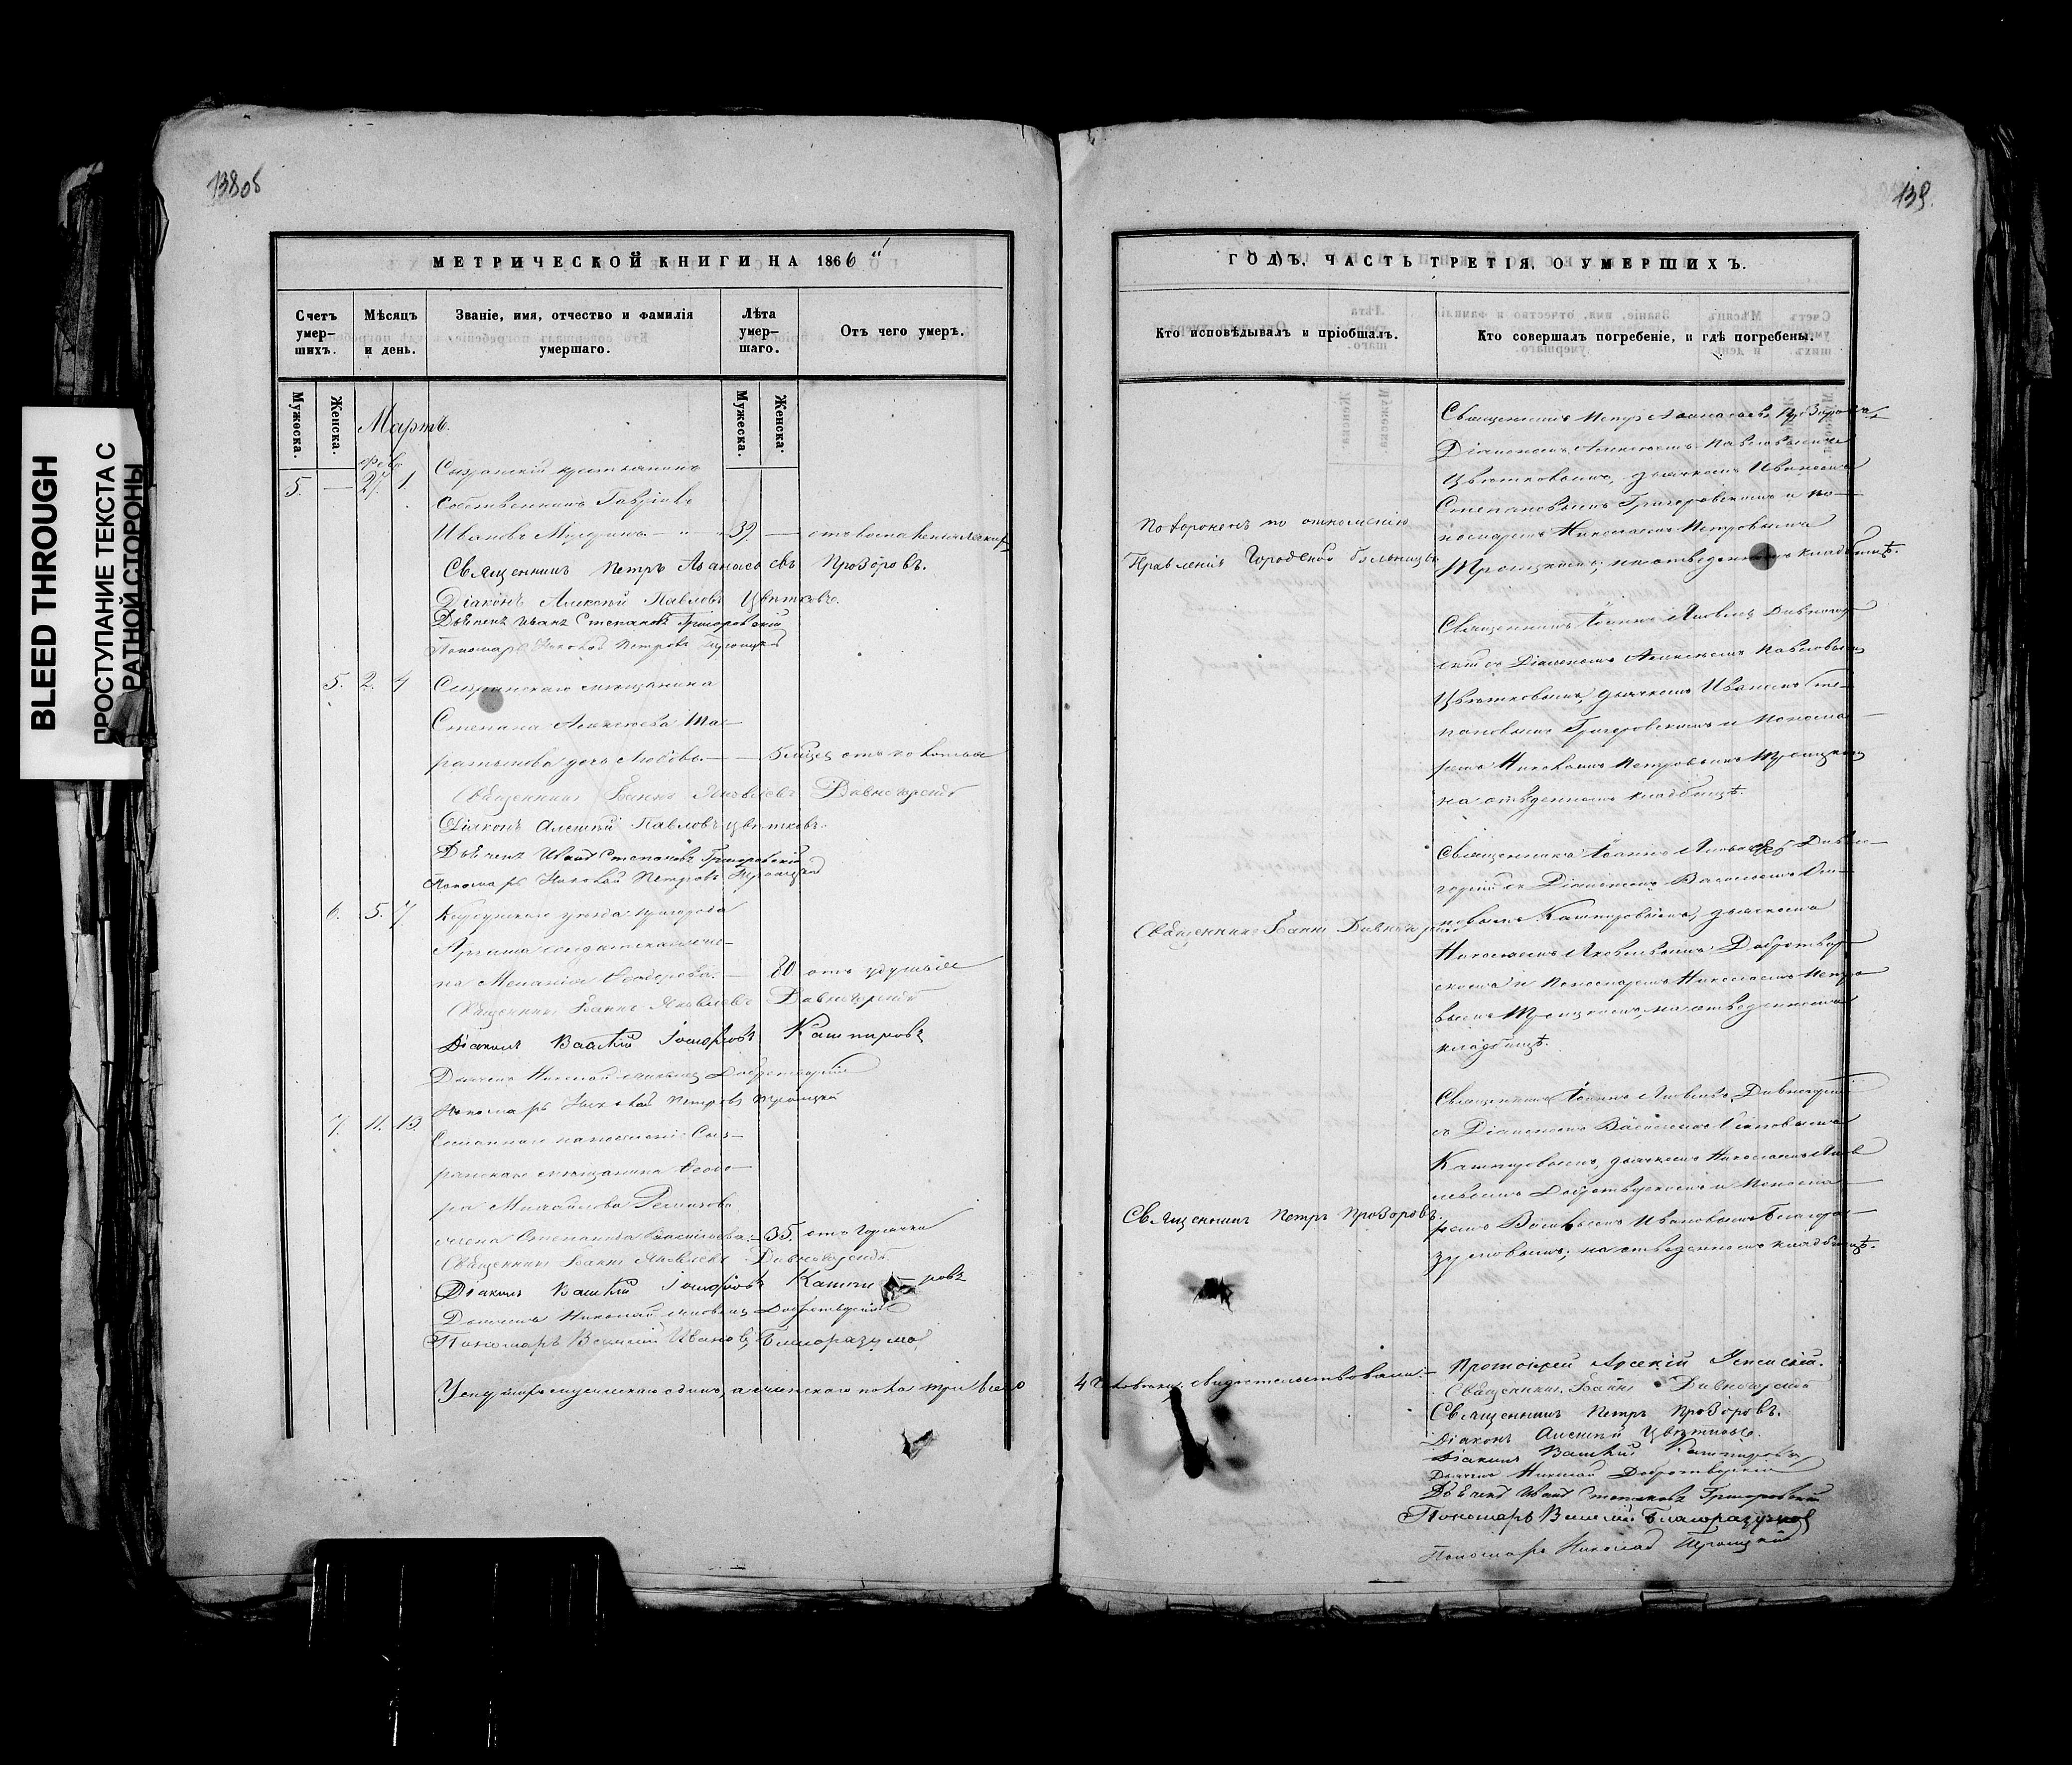 BLEED THROUGH
ПРОСТУПАНИЕ ТЕКСТА С
РАТНОЙ СТОРОНЫ
138об
МЕТРИЧЕСКОЙ КНИГИ НА 1866
Счетъ умер-шихъ.
Мѣсяцъ и день.
Званіе, имя, отчество и фамилія умершаго.
Лѣта умер-шаго.
Отъ чего умеръ.
Мужеска.
Женска.
Мужеска.
Женска.
Мартъ.
февр.
5. — 27. 1. Сызранскій крестьянинъ
Собственникъ Гавріилъ
Ивановъ — " — 39 — отъ воспаленія легких
Священникъ Петръ Аѳанасьевъ Прозоровъ.
Діаконъ Алексѣй Павловъ Цвѣтковъ.
Дьячекъ Иванъ Степановъ Григоровскій
Пономарь Николай Петровъ Троицкій
5. 2. 4 Сызранскаго мѣщанина
Степана Алексѣева
дочь Любовь. — — 5 мѣсяц. отъ
Священникъ Іоаннъ Яковлевъ Дивногорскій
Діаконъ Алексѣй Павловъ Цвѣтковъ.
Дьячекъ Иванъ Степановъ Григоровскій
Пономарь Николай Петровъ Троицкій
6. 5. 7 Корсунскаго уѣзда пригорода
Аргаша солдатская же-
на Меланія Ѳеодорова. — 80 отъ удушья
Священникъ Іоаннъ Яковлевъ Дивногорскій
Діаконъ Василій Кашпировъ
Дьячекъ Николай Яковлевъ Добротворскій
Пономарь Николай Петровъ Троицкій
7. 11. 13. Сосланнаго на поселеніе Сыз-
ранскаго мѣщанина Ѳеодо-
ра Михайлова
жена Степанида Васильева. — 35. отъ горячки
Священникъ Іоаннъ Яковлевъ Дивногорскій
Діаконъ Василій Кашпировъ
Дьячекъ Николай Яковлевъ Добротворскій
Пономарь Василій Ивановъ Благоразумов
мужескаго одинъ, а женскаго пола три всего
139.
ГОДЪ, ЧАСТЬ ТРЕТІЯ, О УМЕРШИХЪ.
Кто исповѣдывалъ и пріобщалъ.
Кто совершалъ погребеніе, и гдѣ погребены.
Похороненъ по отношенію
Правленія Городской больницы.
Священникъ Петръ Аѳанасьевъ Прозоровъ
Діакономъ Алексѣемъ Павловымъ
Цвѣтковымъ, дьячкомъ Иваномъ
Степановымъ Григоровскимъ и по-
номаремъ Николаемъ Петровымъ
Троицкимъ, на отведенномъ кладбищѣ.
Священникъ Іоаннъ Яковлевъ Дивногор-
скій съ Діакономъ Алексѣемъ Павловымъ
Цвѣтковымъ, дьячкомъ Иваномъ Сте-
пановымъ Григоровскимъ и понома-
ремъ Николаемъ Петровымъ Троицкимъ
на отведенномъ кладбищѣ.
Священникъ Іоаннъ Дивногорскій
Священникъ Іоаннъ Яковлевъ Дивно-
горскій съ Діакономъ Василіемъ
Кашпировымъ, дьячкомъ
Николаемъ Яковлевымъ Добротвор-
скимъ и пономаремъ Николаемъ Петро-
вымъ Троицкимъ, на отведенномъ
кладбищѣ.
Священникъ Петръ Прозоровъ.
Священникъ Іоаннъ Яковлевъ Дивногорскій
съ Діакономъ Василіемъ
Кашпировымъ, дьячкомъ Николаемъ Яков-
левымъ Добротворскимъ и понома-
ремъ Василіемъ Ивановымъ Благора-
зумовымъ; на отведенномъ кладбищѣ.
4 человѣка. Свидѣтельствовали: —
Протоіерей Арсеній
Священникъ Іоаннъ Дивногорскій
Священникъ Петръ Прозоровъ.
Діаконъ Алексѣй Цвѣтковъ.
Діаконъ Василій Кашпировъ
Дьячекъ Николай Добротворскій
Дьячекъ Иванъ Степановъ Григоровскій
Пономарь Василій Благоразумов
Пономарь Николай Троицкій